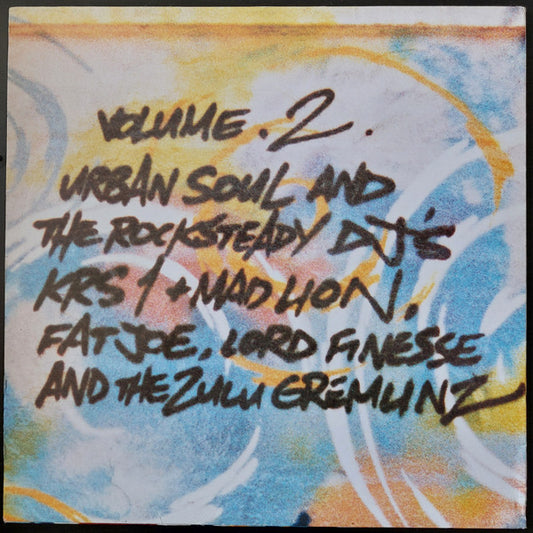 VOLUME.2.
URBAN SOUL AND
THE ROCKSTEADY DJ's
KRS 1 + MAD LION,
FAT JOE, LORD FINESSE
AND THE ZULU GREMLINZ